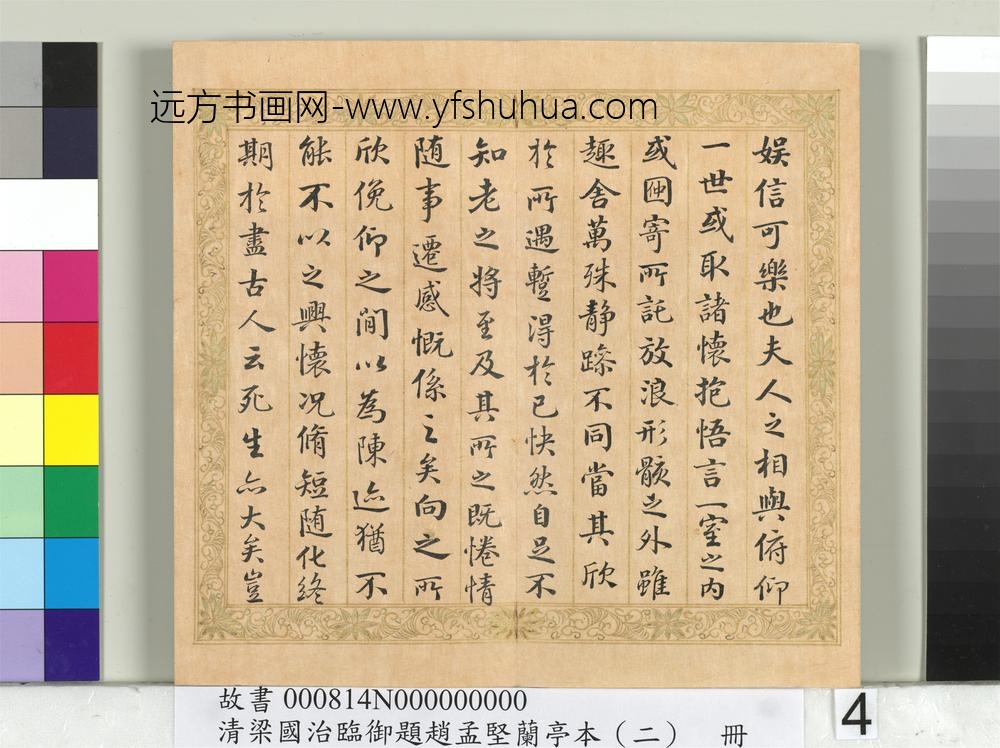 远方书画网-www.yfshuhua.com
娱信可樂也夫人之相與俯仰
一世或取諸懷抱悟言一室之内
或因寄所託放浪形骸之外雖
趣舍萬殊静躁不同當其欣
於所遇蹔得於己快然自足不
知老之将至及其所之既惓情
随事遷感慨係之矣向之所
欣俛仰之間以為陳迹猶不
能不以之興懷况脩短随化終
期於盡古人云死生亦大矣豈
故書000814N000000000
清梁國治臨御題趙孟堅蘭亭本（二） 冊
4